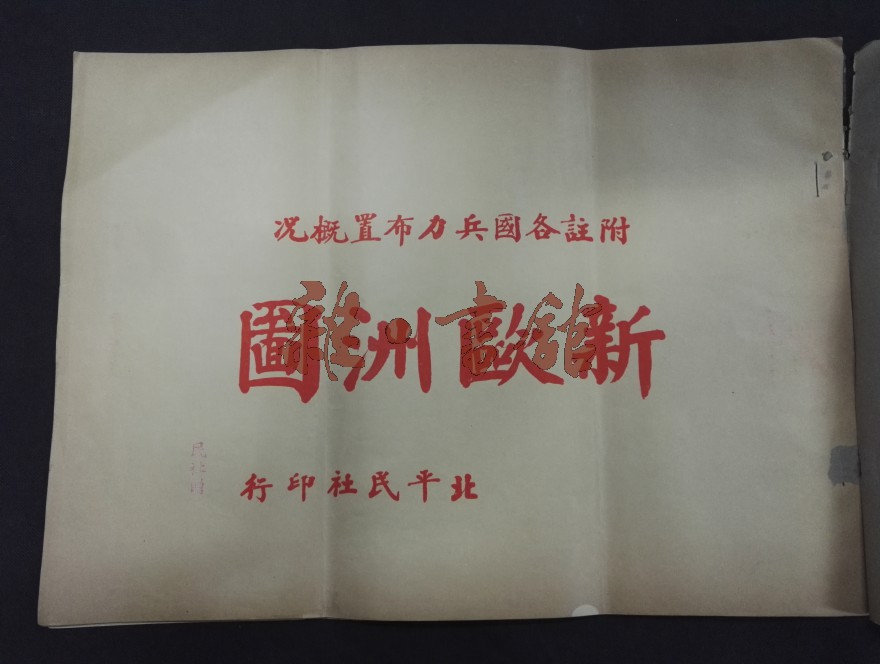 附註各國兵力布置概况
新歐洲圖
雜·書館
北平民社印行